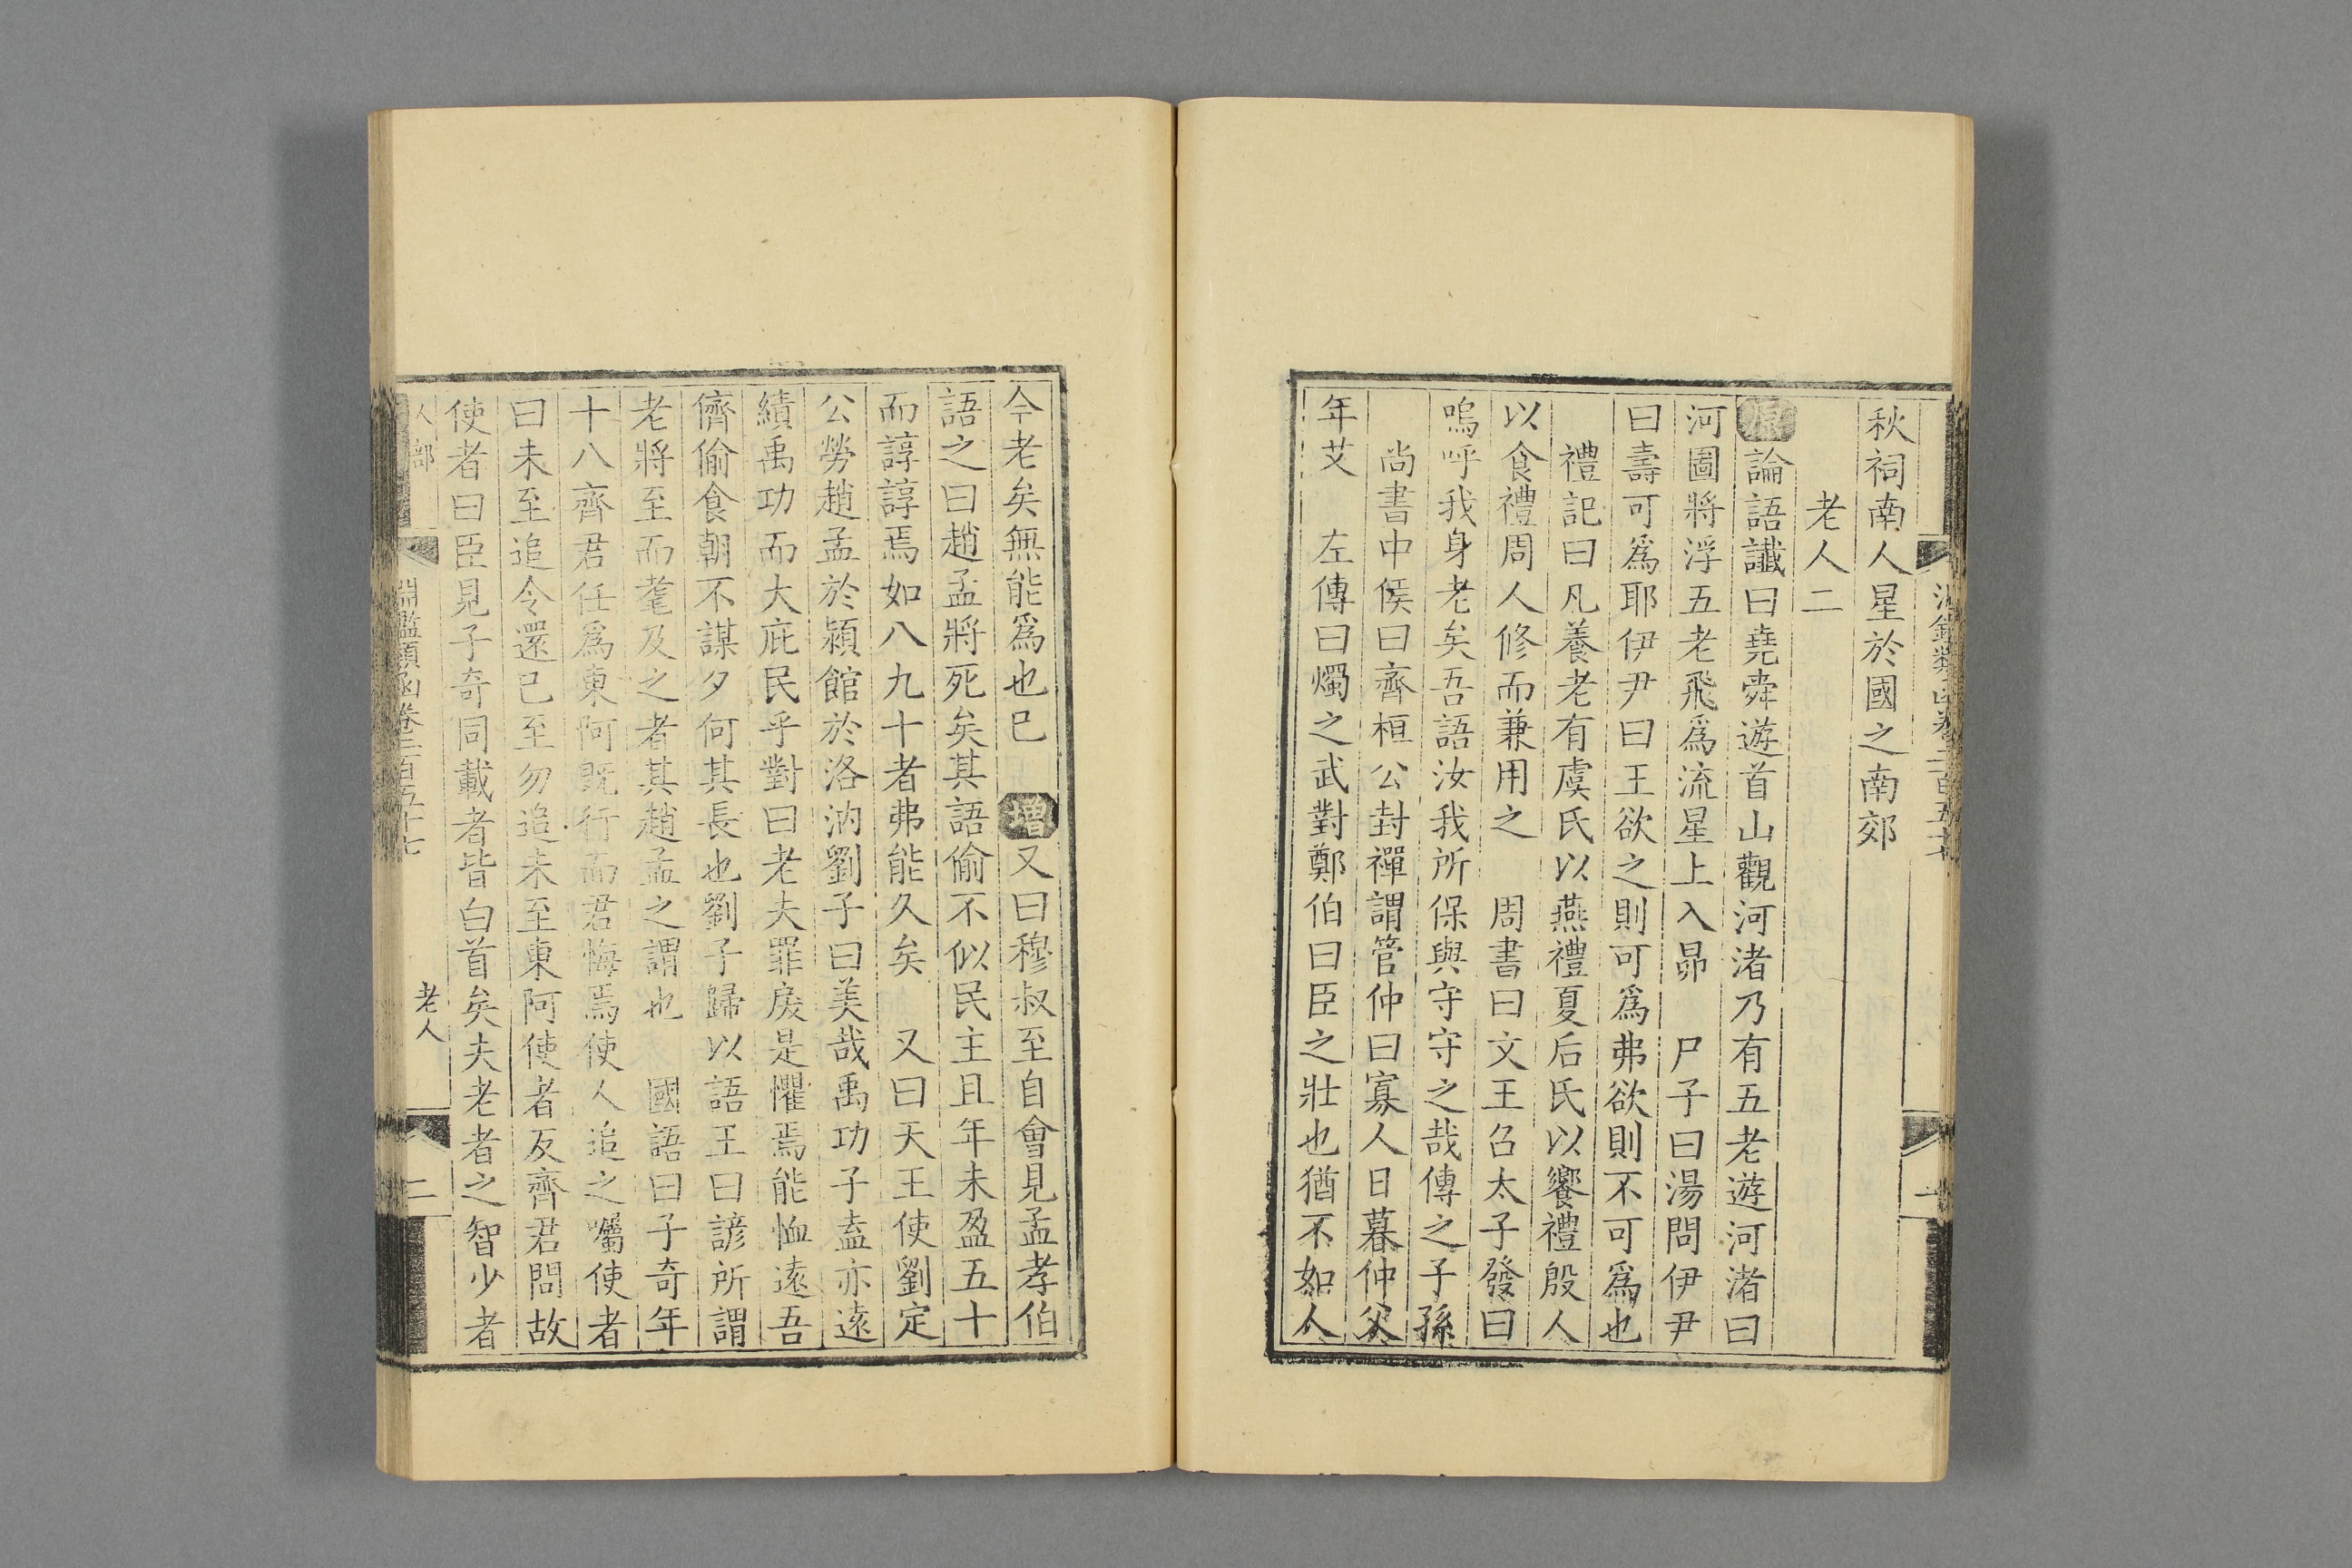 秋祠南人星於國之南郊
老人二
原論語讖曰堯舜遊首山觀河渚乃有五老遊河渚曰
河圖將浮五老飛爲流星上入昴　尸子曰湯問伊尹
曰壽可爲耶伊尹曰王欲之則可爲弗欲則不可爲也
禮記曰凡養老有虞氏以燕禮夏后氏以饗禮殷人
以食禮周人修而兼用之　周書曰文王召太子發曰
嗚呼我身老矣吾語汝我所保與守守之哉傳之子孫
尚書中侯曰齊桓公封禪謂管仲曰寡人日暮仲父
年艾　左傳曰燭之武對鄭伯曰臣之壯也猶不如人
今老矣無能爲也已　增又曰穆叔至自會見孟孝伯
語之曰趙孟將死矣其語偷不似民主且年未盈五十
而諄諄焉如八九十者弗能久矣　又曰天王使劉定
公勞趙孟於潁館於洛汭劉子曰美哉禹功子盍亦遠
績禹功而大庇民乎對曰老夫罪戾是懼焉能恤遠吾
儕偷食朝不謀夕何其長也劉子歸以語王曰諺所謂
老將至而耄及之者其趙孟之謂也　國語曰子奇年
十八齊君任爲東阿既行而君悔焉使人追之囑使者
曰未至追令還已至勿追未至東阿使者反齊君問故
使者曰臣見子奇同載者皆白首矣夫老者之智少者
人部　淵鑑類函卷二百五十七　老人　二